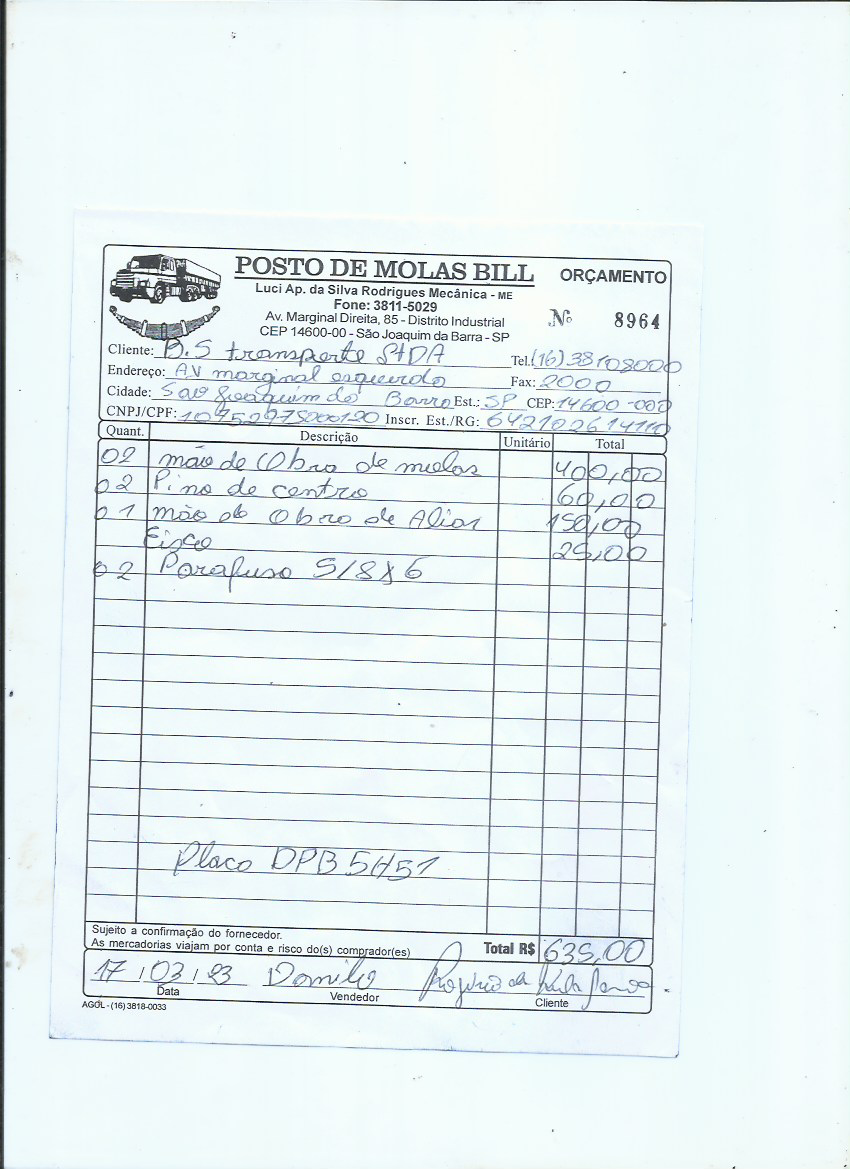 POSTO DE MOLAS BILL
ORÇAMENTO
Luci Ap. da Silva Rodrigues Mecânica - ME
Fone: 3811-5029
Av. Marginal Direita, 85 - Distrito Industrial
CEP 14600-00 - São Joaquim da Barra - SP
Nº 8964
Cliente: B.S transporte LtDA Tel. (16) 38108000
Endereço: AV marginal esquerda Fax: 2000
Cidade: Sao Joaquim da Barra Est.: SP CEP: 14600-000
CNPJ/CPF: Inscr. Est./RG: 642102614110
Quant. Descrição Unitário Total
02 mão de Obra de molas 400,00
02 Pino de centro 60,00
01 mão de Obra de 150,00
25,00
02 Parafuso 5/8 x 6
Placa DPB 5H51
Sujeito a confirmação do fornecedor.
As mercadorias viajam por conta e risco do(s) comprador(es) Total R$ 635,00
17 / 03 / 23 Danilo
Data Vendedor Cliente
AGOL - (16) 3818-0033